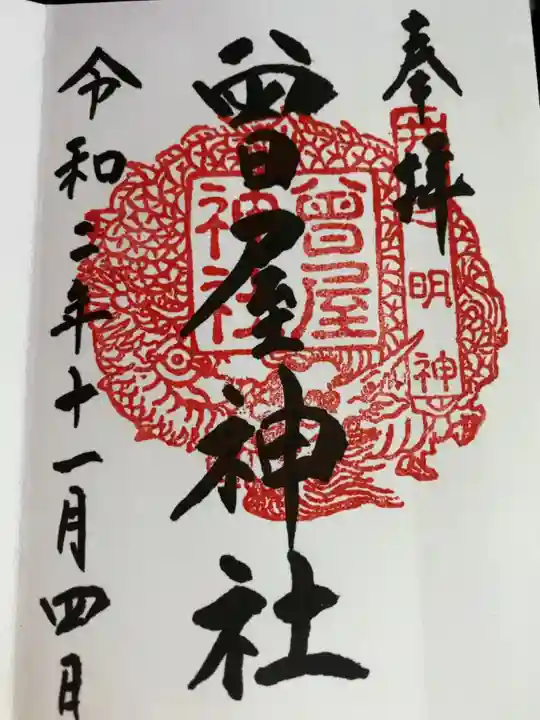 奉拝
明神
曾屋神社
曾屋
神社
令和二年十一月四日